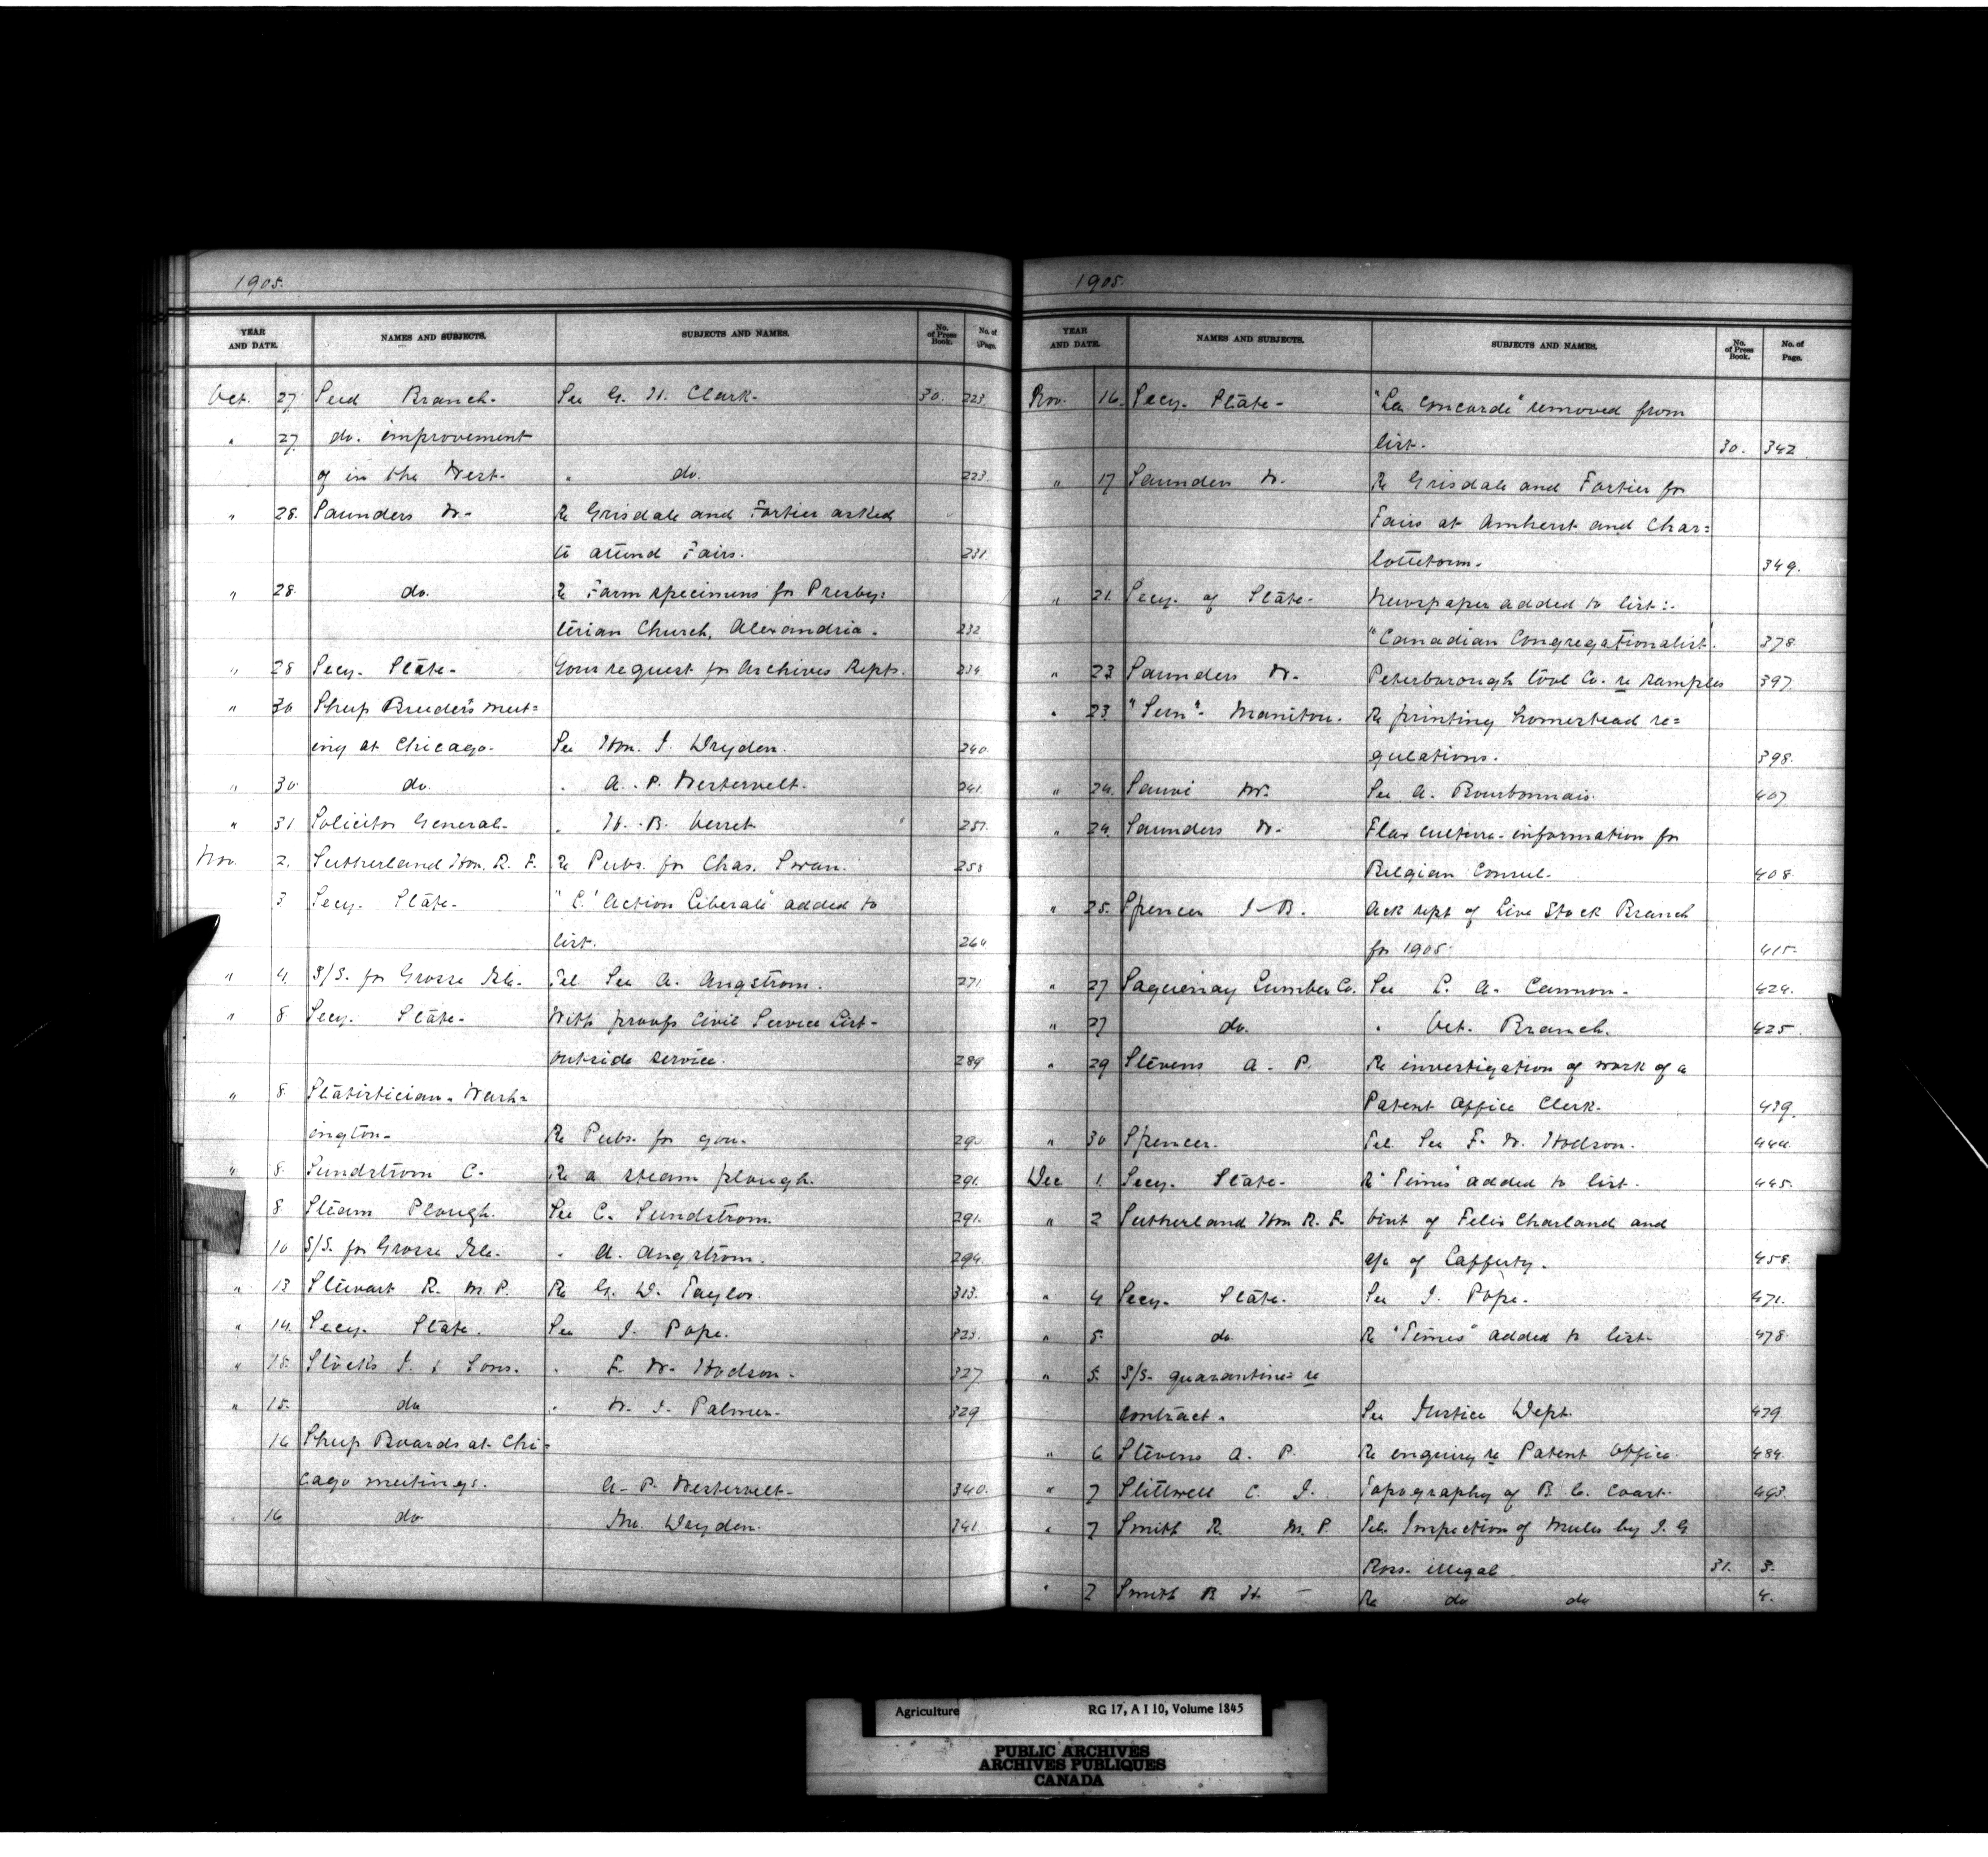 1905.
YEAR AND DATE. NAMES AND SUBJECTS. SUBJECTS AND NAMES. No. of Press Book. No. of Page.
Oct. 27 Seed Branch. See G. H. Clark. 30. 223.
" 27. do. improvement
of in the West. " do. 223.
" 28. Saunders W. Re Grisdale and Fortier asked
to attend Fairs. 231
" 28. do. Re Farm specimens for Presby=
terian Church, Alexandria. 232
" 28 Secy. State. Your request for Archives Repts. 234
" 30 Sheep Breeders meet=
ing at Chicago. See Hon. J. Dryden. 240.
" 30 do. " A. P. Westervelt. 241.
" 31 Solicitor General. " H. B. Verret. 251.
Nov. 2. Sutherland Hon. R. F. Re Pubs. for Chas. Swan. 258
3 Secy. State. "L'Action Liberale" added to
list. 264.
" 4. S/S. for Grosse Isle. Tel. See A. Angstrom. 271
" 8 Secy. State. With proofs Civil Service List-
outside service. 289
" 8. Statistician. Wash=
ington. Re Pubs. for you. 290
" 8. Sundstrom C. Re a steam plough. 291.
8 Steam Plough. See C. Sundstrom. 291.
10 S/S. for Grosse Isle. " A. Angstrom. 294.
" 13 Stewart R. M.P. Re G. W. Taylor. 313.
" 14. Secy. State. See J. Pope. 323.
" 15. Stocks J. & Sons. " F. W. Hodson. 327
" 15. do " W. J. Palmer. 329
16 Sheep Boards at Chi=
cago meetings. A. P. Westervelt. 340.
" 16 do Mr. Dryden. 341.
1905.
YEAR AND DATE. NAMES AND SUBJECTS. SUBJECTS AND NAMES. No. of Press Book. No. of Page.
Nov. 16. Secy. State. "La Concorde" removed from
list. 30. 342.
" 17 Saunders W. Re Grisdale and Fortier for
Fairs at Amherst and Char=
lottetown. 349.
" 21. Secy. of State. Newspaper added to list:-
"Canadian Congregationalist". 378
" 23 Saunders W. Peterborough Tool Co. re samples 397.
" 23 "Sun". Manitou. Re printing homestead re=
gulations. 398.
" 24. Sauvé M. See A. Bourbonnais. 407
" 24. Saunders W. Flax culture-information for
Belgian Consul. 408
" 25. Spencer J. B. Ack rept of Live Stock Branch
for 1905. 415.
" 27 Saguenay Lumber Co. See L. A. Cannon. 424.
" 27 do. " Vet. Branch. 425.
" 29 Stevens A. P. Re investigation of work of a
Patent Office Clerk. 439.
" 30 Spencer. Tel. See F. W. Hodson. 444.
Dec 1. Secy. State. Re "Times" added to list. 445.
" 2 Sutherland Hon R. F. Visit of Felix Charland and
a/c of Cafferty. 458.
" 4 Secy. State. See J. Pope. 471.
" 5. do Re "Times" added to list. 478.
" 5. S/S. quarantine re
contract. See Justice Dept. 479.
" 6 Stevens A. P. Re enquiry re Patent Office. 484.
" 7 Stillwell C. J. Topography of B. C. Coast. 493.
" 7 Smith R. M.P. Tel. Inspection of Mules by J. G.
Ross. illegal. 31. 3.
" 7 Smith B. H. Re do do 4.
Agriculture RG 17, A I 10, Volume 1845
PUBLIC ARCHIVES
ARCHIVES PUBLIQUES
CANADA